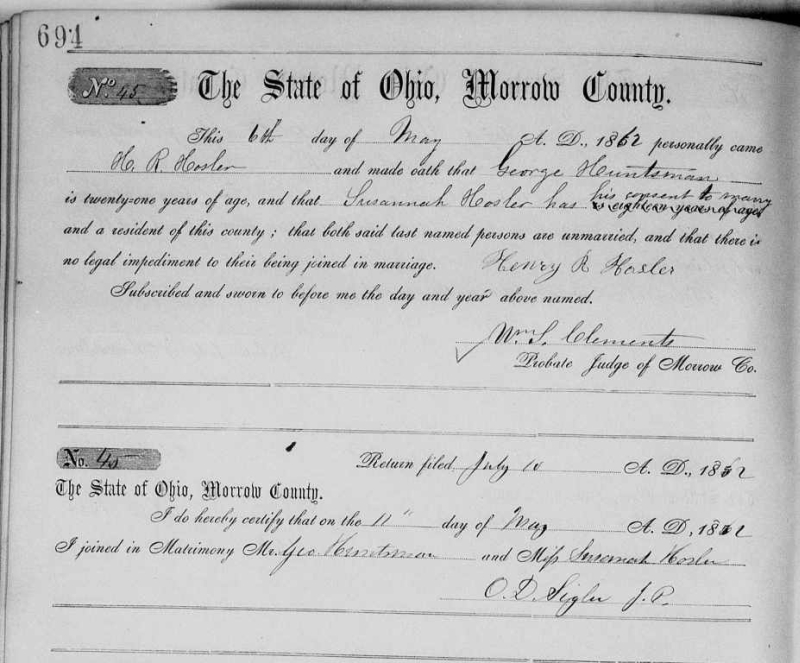 694
No. 45 The State of Ohio, Morrow County.
This 6th day of May A. D., 1862 personally came
H. R. Hosler and made oath that George Huntsman
is twenty=one years of age, and that Susannah Hosler has his consent to marry
is eighteen years of age,
and a resident of this county; that both said last named persons are unmarried, and that there is
no legal impediment to their being joined in marriage. Henry R Hosler
Subscribed and sworn to before me the day and year above named.
Wm. S. Clements
Probate Judge of Morrow Co.
No. 45 Return filed July 10 A. D., 1862
The State of Ohio, Morrow County.
I do hereby certify that on the 11" day of May A. D., 1862
I joined in Matrimony Mr. Geo Huntsman and Miss Susannah Hosler
O. D. Sigler J. P.